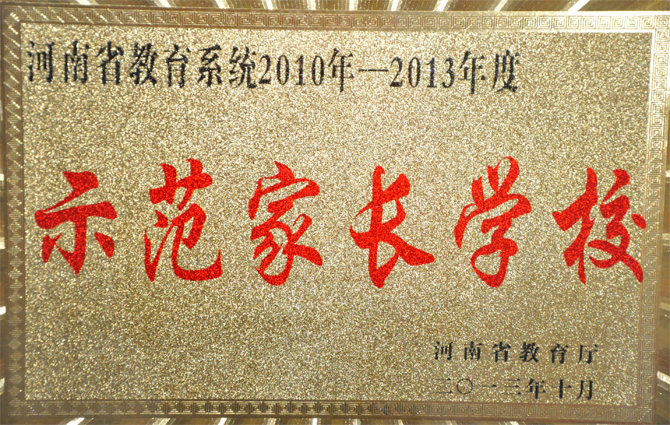 河南省教育系统2010年—2013年度
示范家长学校
河南省教育厅
二〇一三年十月